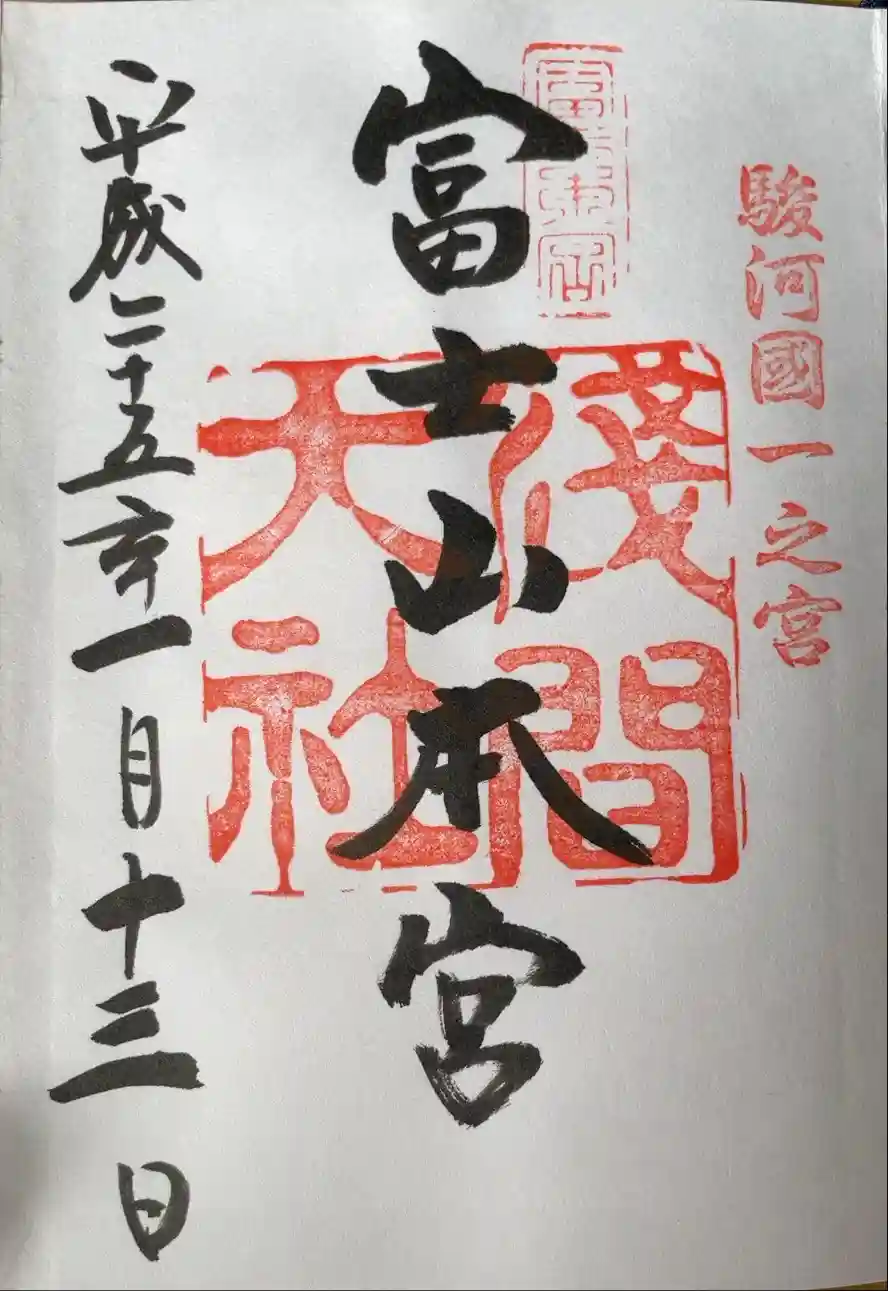 駿河國一之宮
富士山本宮
淺間
大社
平成二十五年一月十三日